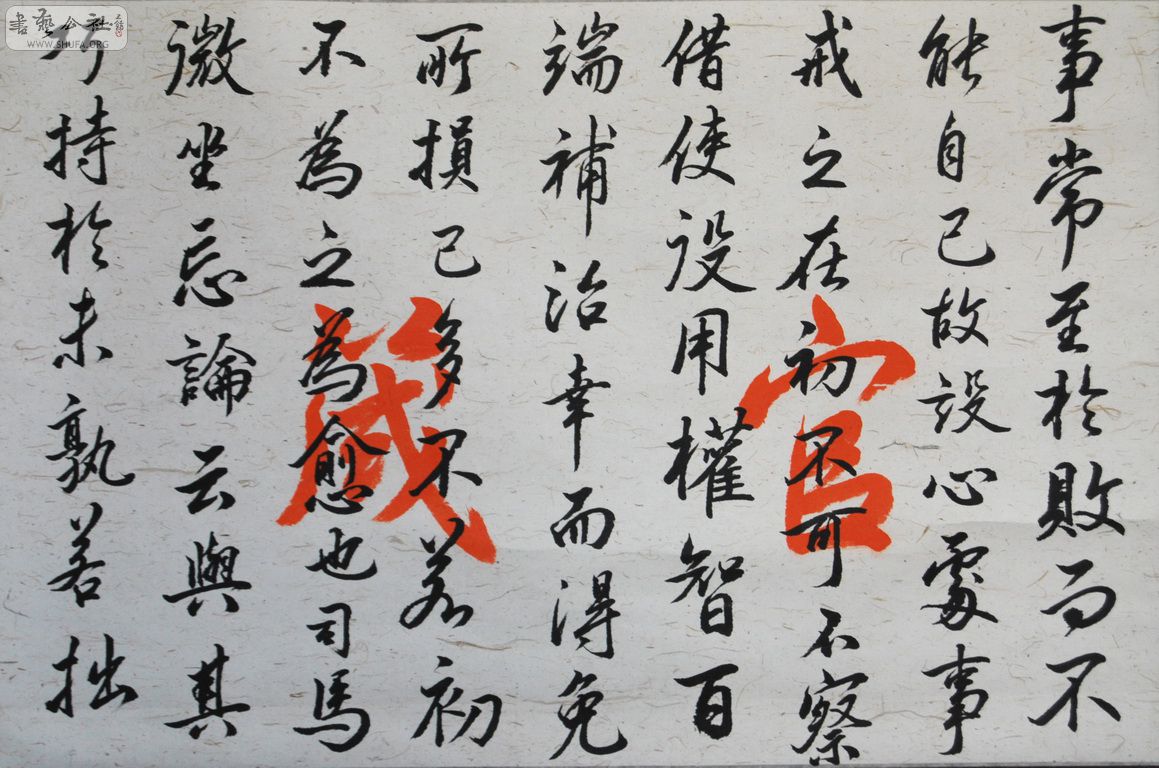 事常至於敗而不
能自已故設心處事
戒之在初不可不察
借使設用權智百
端補治幸而得免
所損已多不若初
不為之為愈也司馬
微坐忘論云與其
巧持於末孰若拙
官箴
書藝公社
WWW.SHUFA.ORG